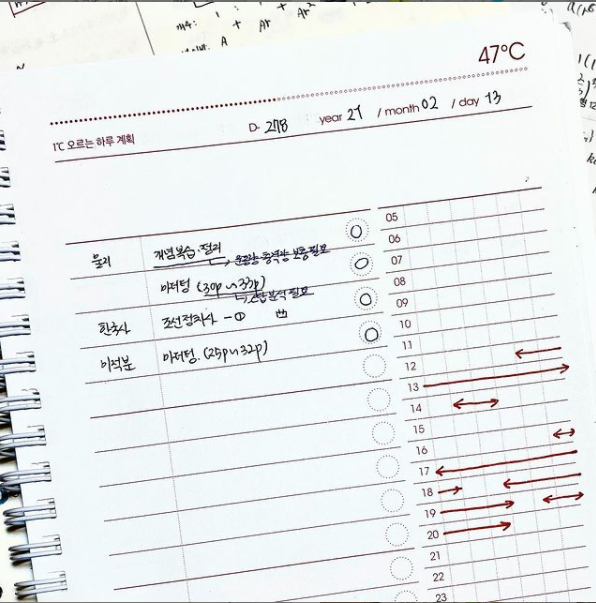 47°C
1℃ 오르는 하루 계획
D- 278 year 21 / month 02 / day 13
물리 개념복습·정리
운동량 충격량 보충필요
마더텅 (30p~33p)
오답분석필요
한국사 조선정치사 -①
미적분 마더텅. (25p~32p)
05
06
07
08
09
10
11
12
13
14
15
16
17
18
19
20
21
22
23
A